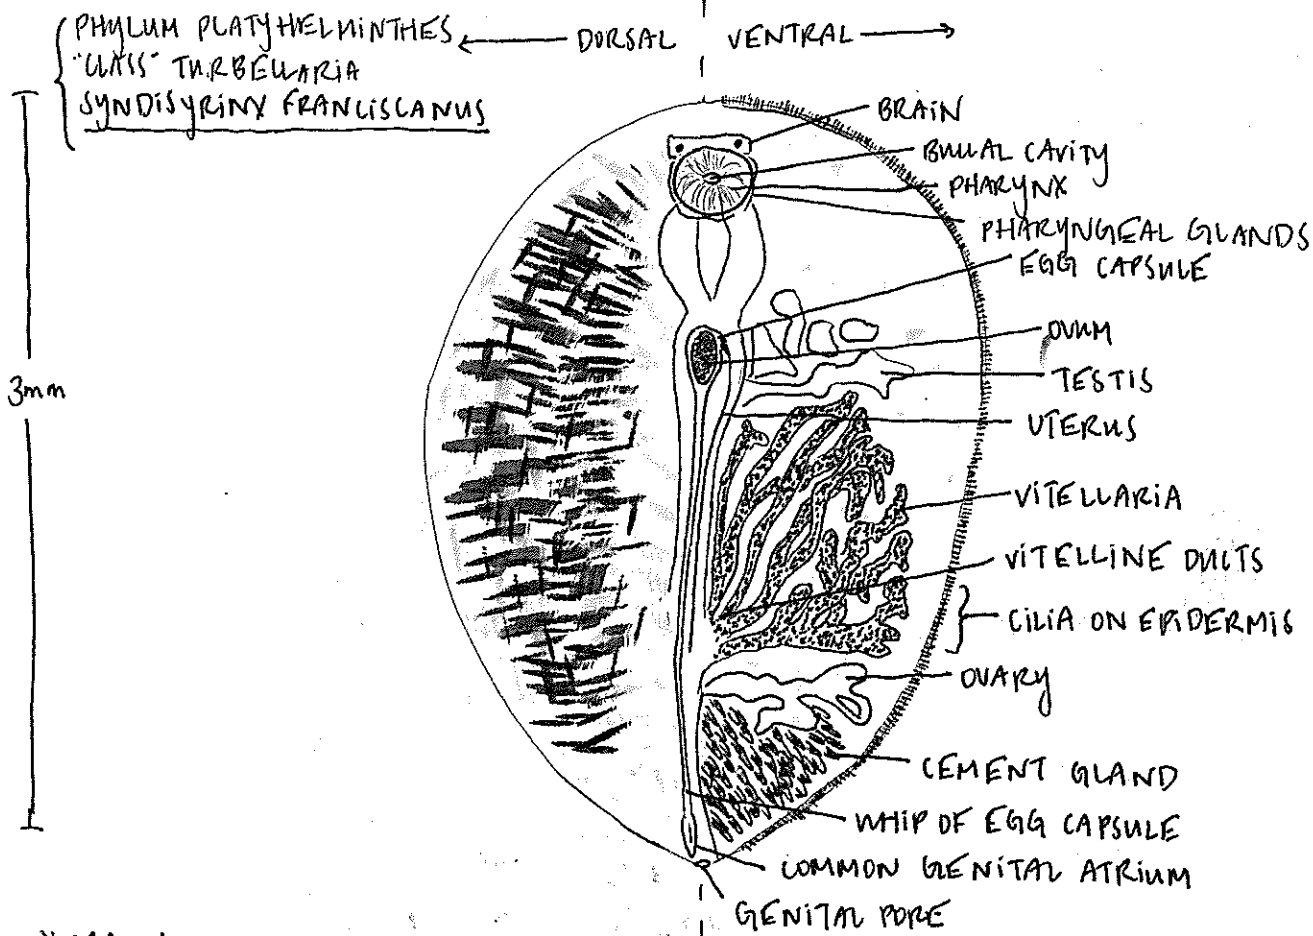 PHYLUM PLATYHELMINTHES
"CLASS" TURBELLARIA
SYNDISYRINX FRANCISCANUS
DORSAL VENTRAL
BRAIN
BUCCAL CAVITY
PHARYNX
PHARYNGEAL GLANDS
EGG CAPSULE
OVUM
3mm
TESTIS
UTERUS
VITELLARIA
VITELLINE DUCTS
CILIA ON EPIDERMIS
OVARY
CEMENT GLAND
WHIP OF EGG CAPSULE
COMMON GENITAL ATRIUM
GENITAL PORE